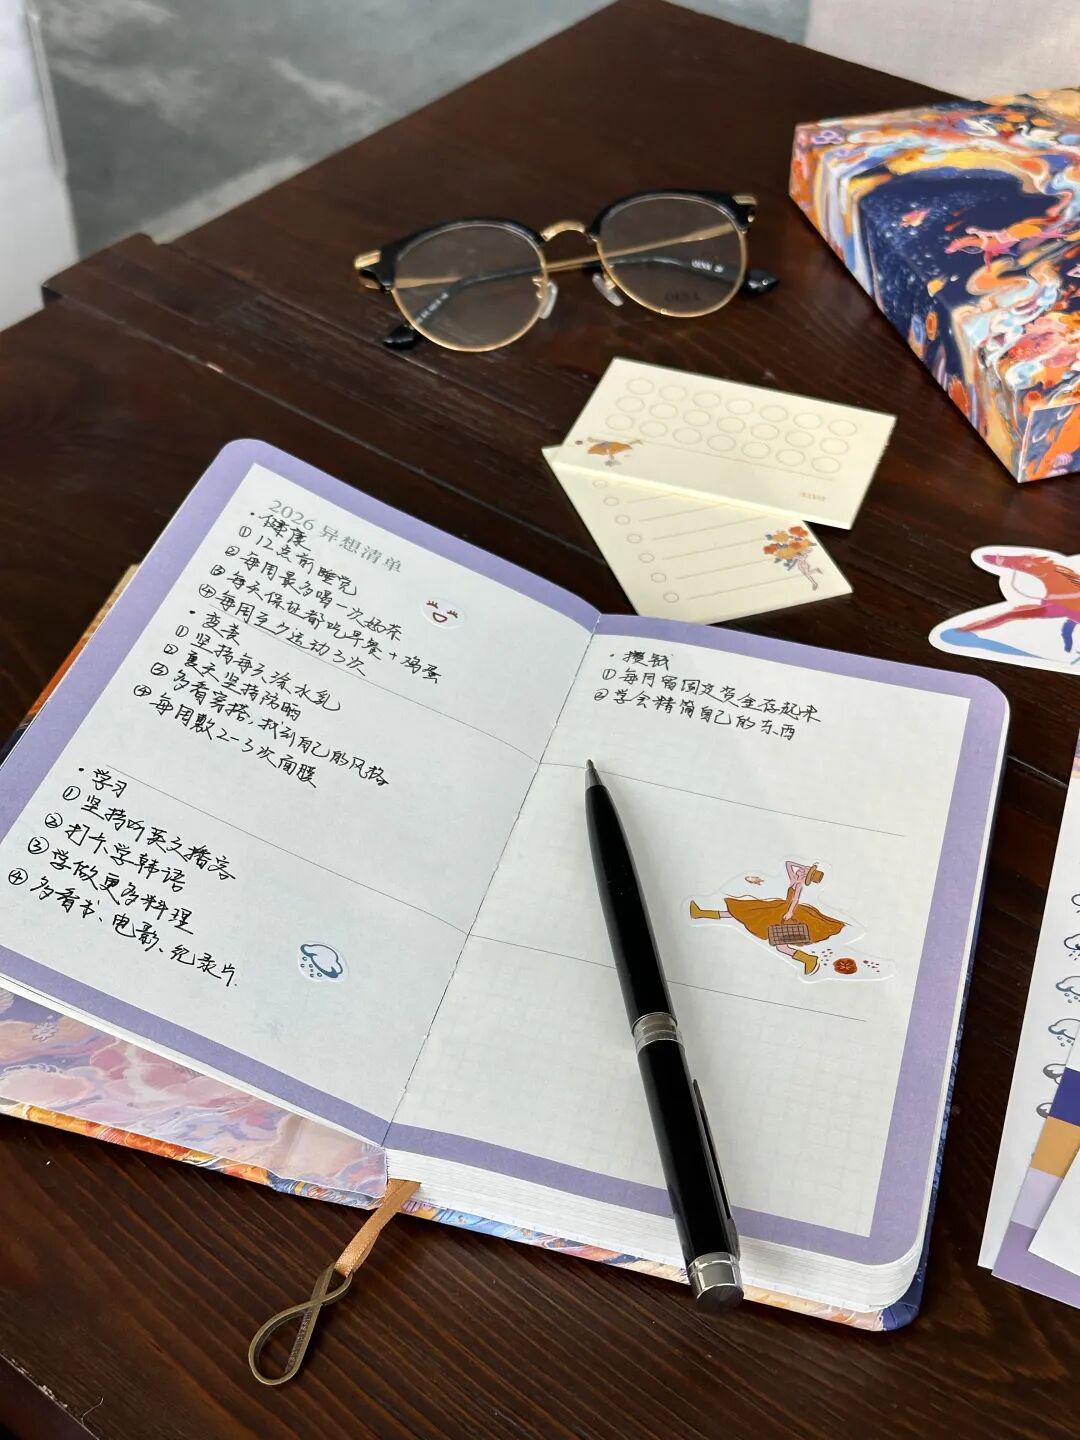 2026 异想清单
·健康
①12点前睡觉
②每周最多喝一次奶茶
③每天保证都吃早餐+鸡蛋
④每周至少运动3次
·变美
①坚持每天涂水乳
②夏天坚持防晒
③多看穿搭,找到自己的风格
④每周敷2-3次面膜
·学习
①坚持听英文播客
②打卡学韩语
③学做更多料理
④多看书、电影、纪录片.
·攒钱
①每月留固定资金存起来
②学会精简自己的东西
DATE: